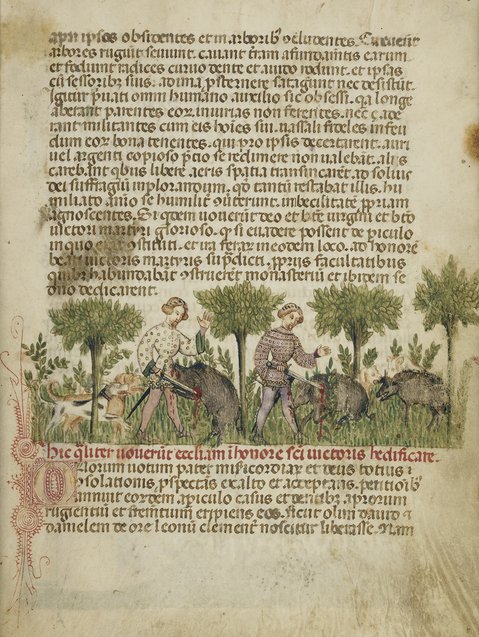 apri ipsos obsidentes et in arborib3 reludentes. Ceperunt
arbores rugiunt seviunt. cavant tram a fundamtis earum
et fodiunt radices curvo dente et avido rodunt. et ipsas
cu sessoribus suis. ad ima psternere satagunt nec desistut.
Igitur puati omni humano auxilio sic obsessi. qa longe
aberant parentes eor. iniurias non ferentes. nec
rant militantes cum eis hoies sui. vassali fideles in feu
dum eor bona tenentes. qui pro ipsis decertarent. auri
vel argenti copioso ptio se redimere non valebat. alis
carebant qbus libere aeris spatia transirent. ad solius
dei suffragiu implorandum. qd tantu restabat illis. hu
miliato aio se humilit converterunt. imbecilitate ppriam
agnoscentes. Si qdem voverut deo et bte virgini et bto
victori martyri glorioso. q si evadere possent de piculo
in quo erant constituti. et in feraru in eodem loco. ad honore
beati victoris martyris supdicti. pprijs facultatibus
quib habundabat construeret monasteriu et ibidem se
deo dedicarent.
hic qliter voverut eccliam i honore sci victoris hedificare.
Quorum votum pater misericordiar et deus totius
solationis pspectans ex alto et acceptans petitioib
annuit eordem a piculo casus et dentib3 aprorum
rugientiu et frementiu eripiens eos. sicut olim david et
danielem de ore leonu clement noscitur liberasse. Nam